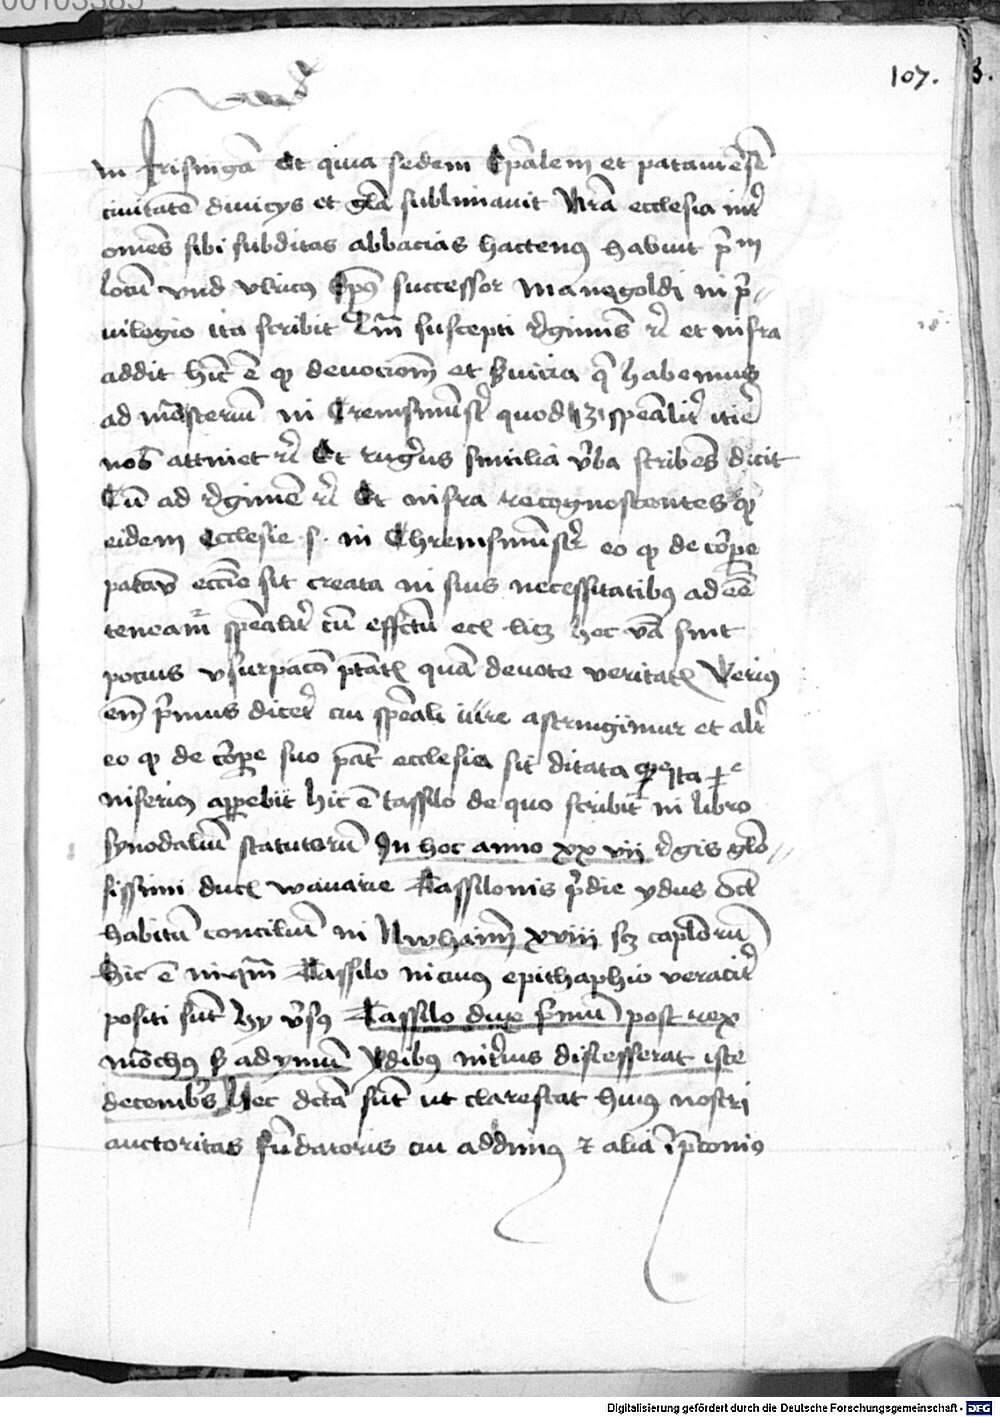 00103385
107.
in frisingā Et quia sedem Ep̄alem et patauiēsē
ciuitatē diuicijs et gl̄a sublimauit Nr̄a ecclesia int̄
om̄es sibi subditas abbacias hactenꝰ habuit p̄m
locū vnd vlricꝰ Ep̄s successor Manegoldi in p̄//
uilegio ita scribit Cū suscepti r̄giminis rc̄ et infra
addit hic ē qꝫ deuocionē et seruicia q̄ habemus
ad mōsteriū in Cremsmūst̄ quod spēalit̄
nos attinet rc̄ Et ruḡus similia v̄ba scribēs dicit
Cū ad r̄gimē rc̄ Et infra recognoscentes qꝫ
eidem Ecclesie .s. in Chremsmūst̄ eo qꝫ de cōrpe
patav̄ ecc̄ie sit creata in suis necessitatibꝫ ad eē
teneam̄ spēalit̄ cū effectū ecꝫ licꝫ hec v̄a sint
pocius vsurpac̄ōs quā deuote veritatꝫ Verius
em̄ p̄mus dicer̄ cui spēali iure astringimur et alt̄
eo qꝫ de cōrpe suo pat̄ ecclesia sit ditata
inferiꝰ apparebit hic ē tassilo de quo scribit̄ in libro
synodaliū statutorū In hoc anno xx vii r̄gis glō//
sissimi ducꝫ wauarie Tassilonis p̄die ydus oct̄
habitū conciliū in Nwhaim̄ xviii scꝫ capl̄orū
hic ē inqm̄ Tassilo in cuiꝰ epithaphio veracit̄
positi sūt hy v̄sꝰ Tassilo dux p̄mū post rex
mōchꝰ sꝫ ad ymū Idibꝰ discesserat iste
decembr̄s Hec dc̄ta sūt ut clarescat huiꝰ nostri
auctoritas fūdatoris cui addimꝰ ⁊ alia
Digitalisierung gefördert durch die Deutsche Forschungsgemeinschaft - DFG